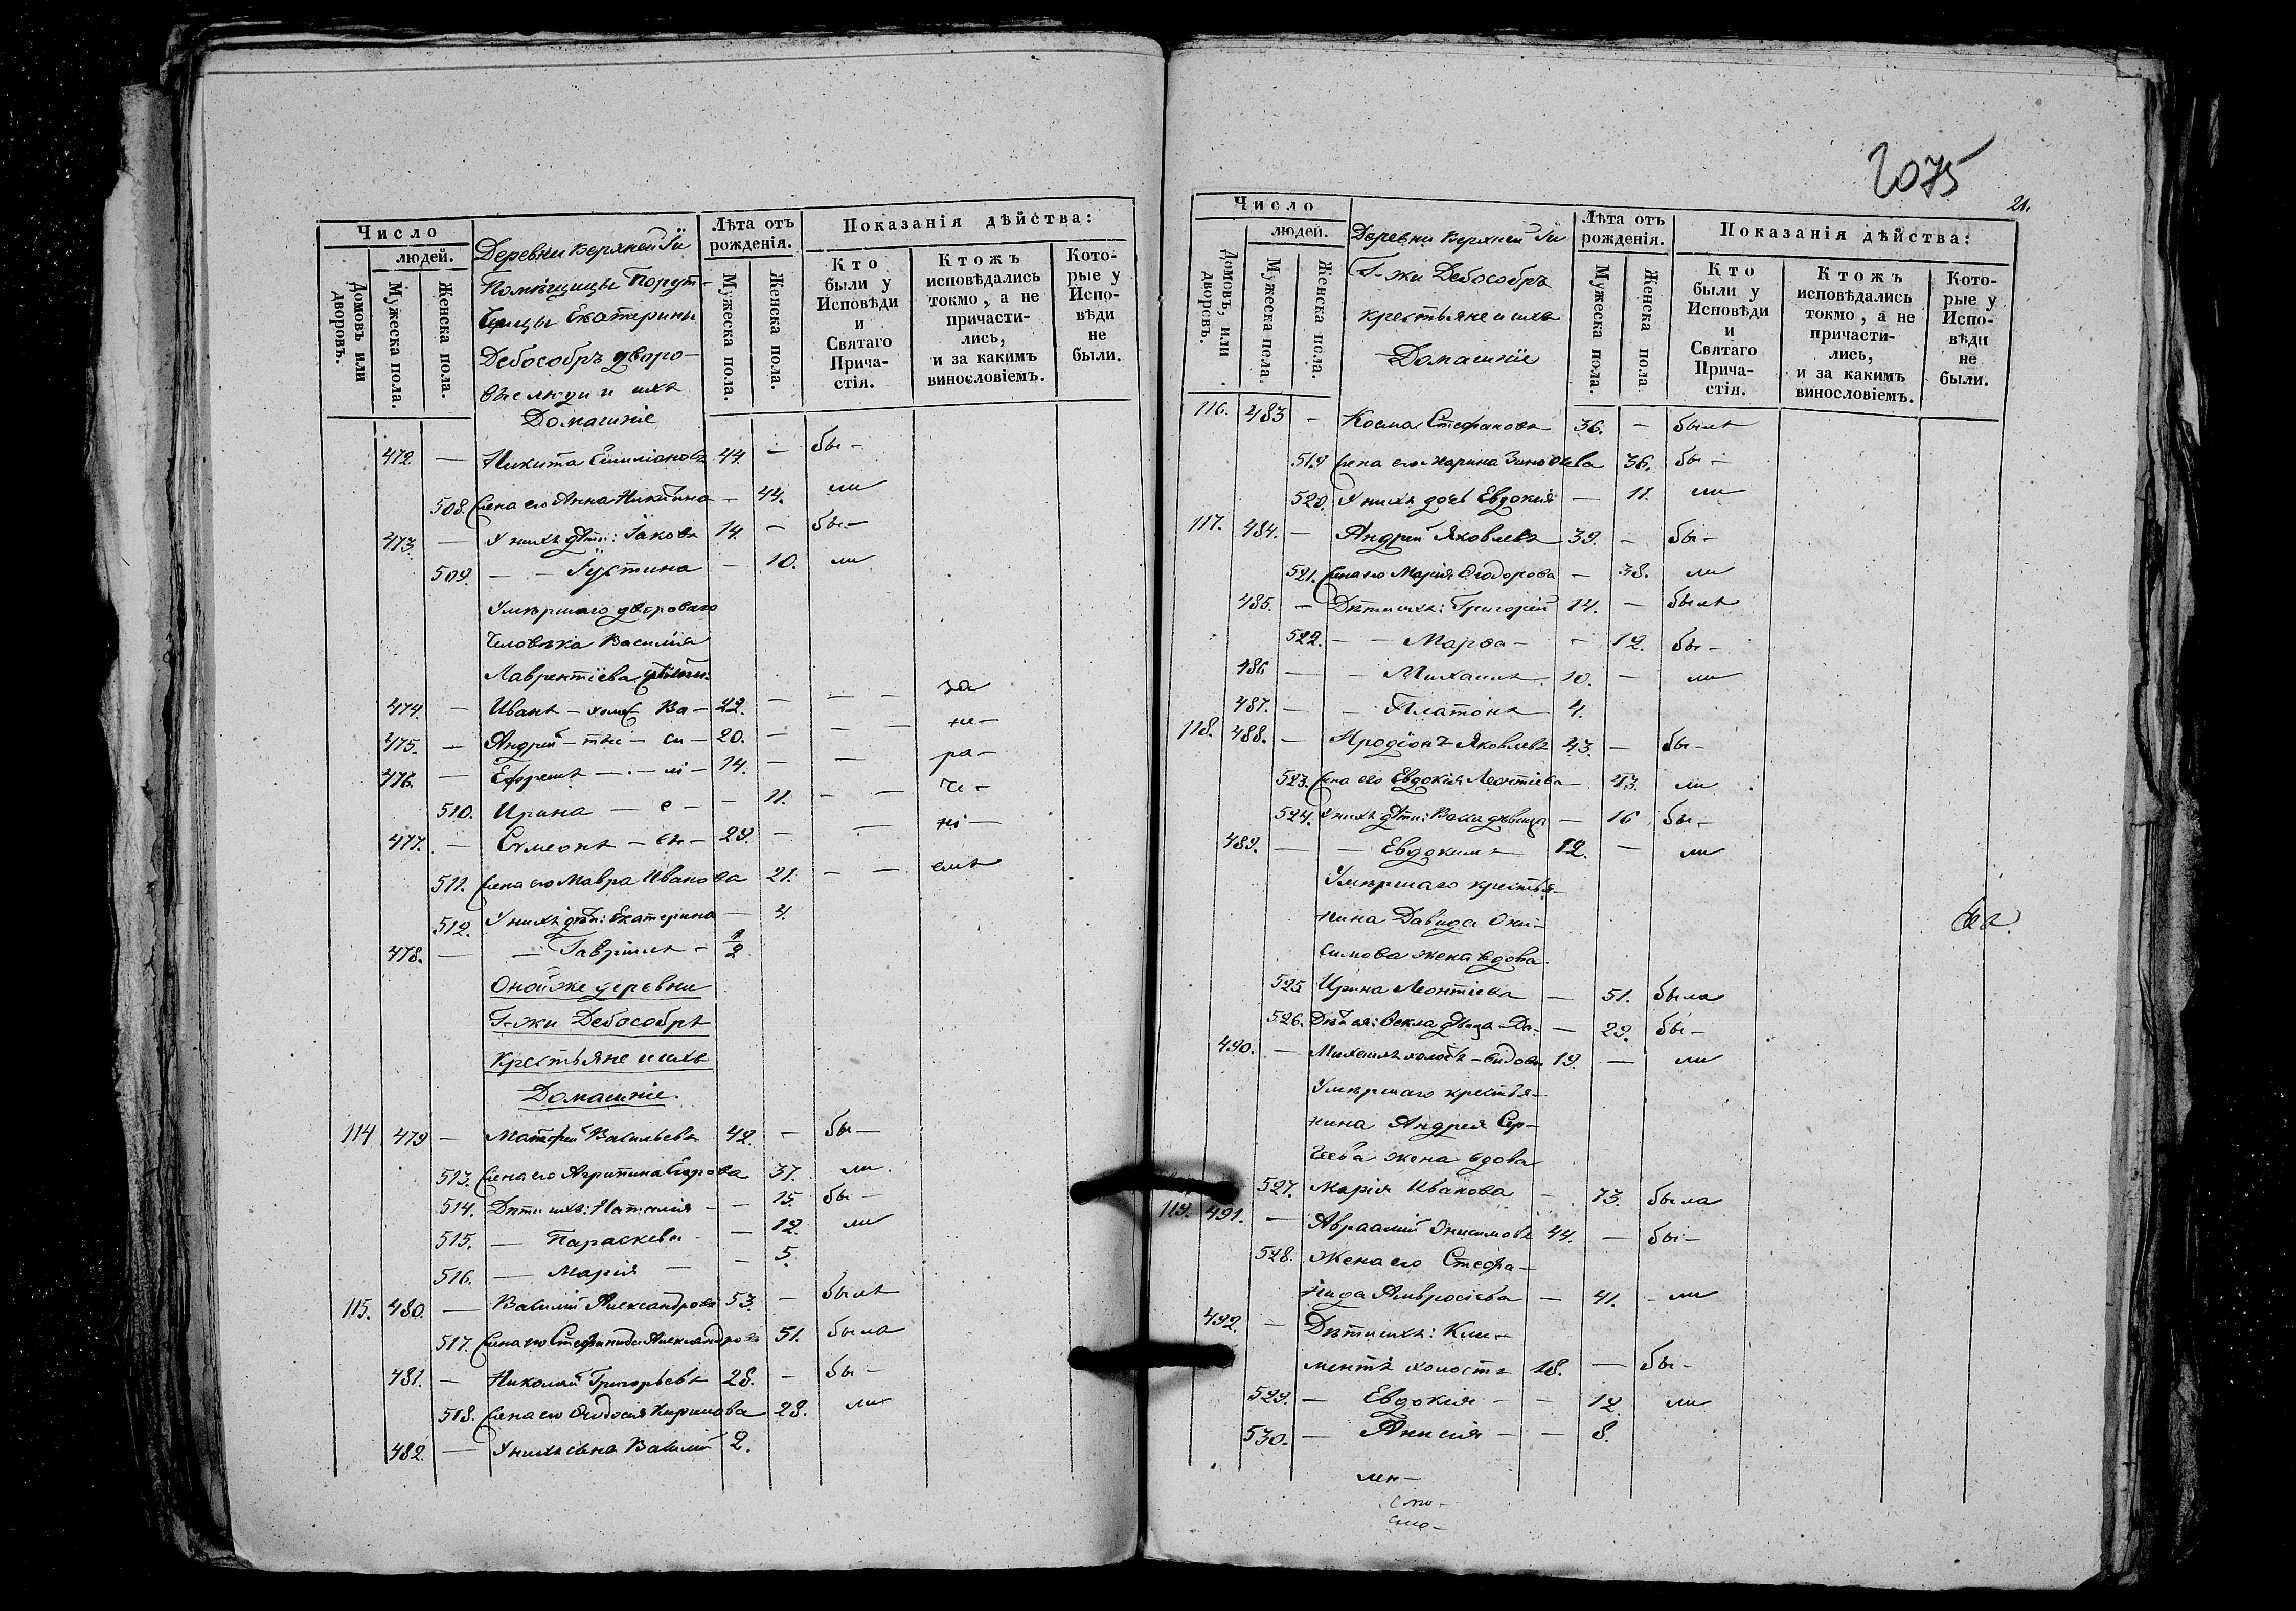 Число
людей.
Домовъ или дворовъ.
Мужеска пола.
Женска пола.
Деревни Верхней Іи
Помѣщицы Порут-
чицы Екатерины
Дебособръ дворо-
вые люди и ихъ
Домашніе
Лѣта отъ рожденія.
Мужеска пола.
Женска пола.
Показанія дѣйства:
Кто были у Исповѣди и Святаго Прича-стія.
Ктожъ исповѣдались токмо, а не причасти-лись, и за какимъ винословіемъ.
Кото-рые у Испо-вѣди не были.
472. — Никита Емиліановъ 44. — бы-
508. Жена его Анна Никитина — 44. ли
473. — У нихъ дѣти: Іаковъ 14. — бы-
509. — — Іустина — 10. ли
Умершаго двороваго
Человѣка Василія
Лаврентіева дѣти:
474. — Иванъ — холос Ва — 22. — — — за
475. — Андрей — тые — си — 20. — — — не-
476. — Ефремъ — . — лі — 14. — — — ра-
510. Ирина — е — — 11. — — че-
477. — Сѵмеонъ — вы — 29. — — ні —
511. Жена его Мавра Иванова 21. — — емъ
512. У нихъ дѣти: Екатерина — 4.
478. — — Гавріилъ — 1/2
Онойже деревни
Г-жи Дебособръ
Крестьяне и ихъ
Домашніе.
114 479 — Матфей Васильевъ 42. — бы —
513. Жена его Агрипина Егорова 37. ли.
514. Дѣти ихъ: Наталія — — 15. бы —
515. — Параскева — — 12. ли
516. — Марія — — 5.
115. 480. — Василій Александровъ 53. — былъ
517. Жена его Стефанида Александрова 51. была
481. — Николай Григорьевъ 28. — бы —
518. Жена его Ѳеодосія Кирилова 28. ли
482. — У нихъ сынъ Василій 2.
2075
21.
Число
людей.
Домовъ, или дворовъ.
Мужеска пола.
Женска пола.
Деревни Верхней Іи
Г-жи Дебособръ
крестьяне и ихъ
Домашніе
Лѣта отъ рожденія.
Мужеска пола.
Женска пола
Показанія дѣйства:
Кто были у Исповѣди и Святаго Прича-стія.
Ктожъ исповѣдались токмо, а не причасти-лись, и за какимъ винословіемъ.
Кото-рые у Испо-вѣди не были.
116. 483 — Косма Стефановъ 36. — былъ
519 Жена его Марина Зиновьева 36. бы —
520. У нихъ дочь Евдокія — 11. ли
117. 484. — Андрей Яковлевъ 39. — бы —
521. Жена его Марія Ѳеодорова — 38. ли
485. — Дѣти ихъ: Григорій 14. — былъ
522. — — Марѳа — — 12. бы —
486 — — Михаилъ 10. — ли
487. — — Платонъ 4.
118. 488. — Иродіонъ Яковлевъ 43. — бы —
523. Жена его Евдокія Леонтіева 43. ли
524. У нихъ дѣти: Васса дѣвица — 16 бы —
489. — — Евдокимъ 12. — ли
Умершаго крестья-
нина Давида Они-
симова жена вдова
525 Ирина Леонтіева — 51. была
526. Дѣти ея: Ѳекла дѣвица — Да- — 29. бы —
490. — Михаилъ холостъ — видовы 19. — ли
Умершаго крестья-
нина Андрея Сер-
геева жена вдова
527. Марія Иванова — 73. была
119. 491. — Авраамій Онисимовъ 44. — бы —
528. Жена его Стефа-
нида Амвросіева — 41. — ли
492. — Дѣти ихъ: Кли-
ментъ холостъ 18. — бы —
529. — Евдокія — — 12 ли
530. — Анисія — — 8.